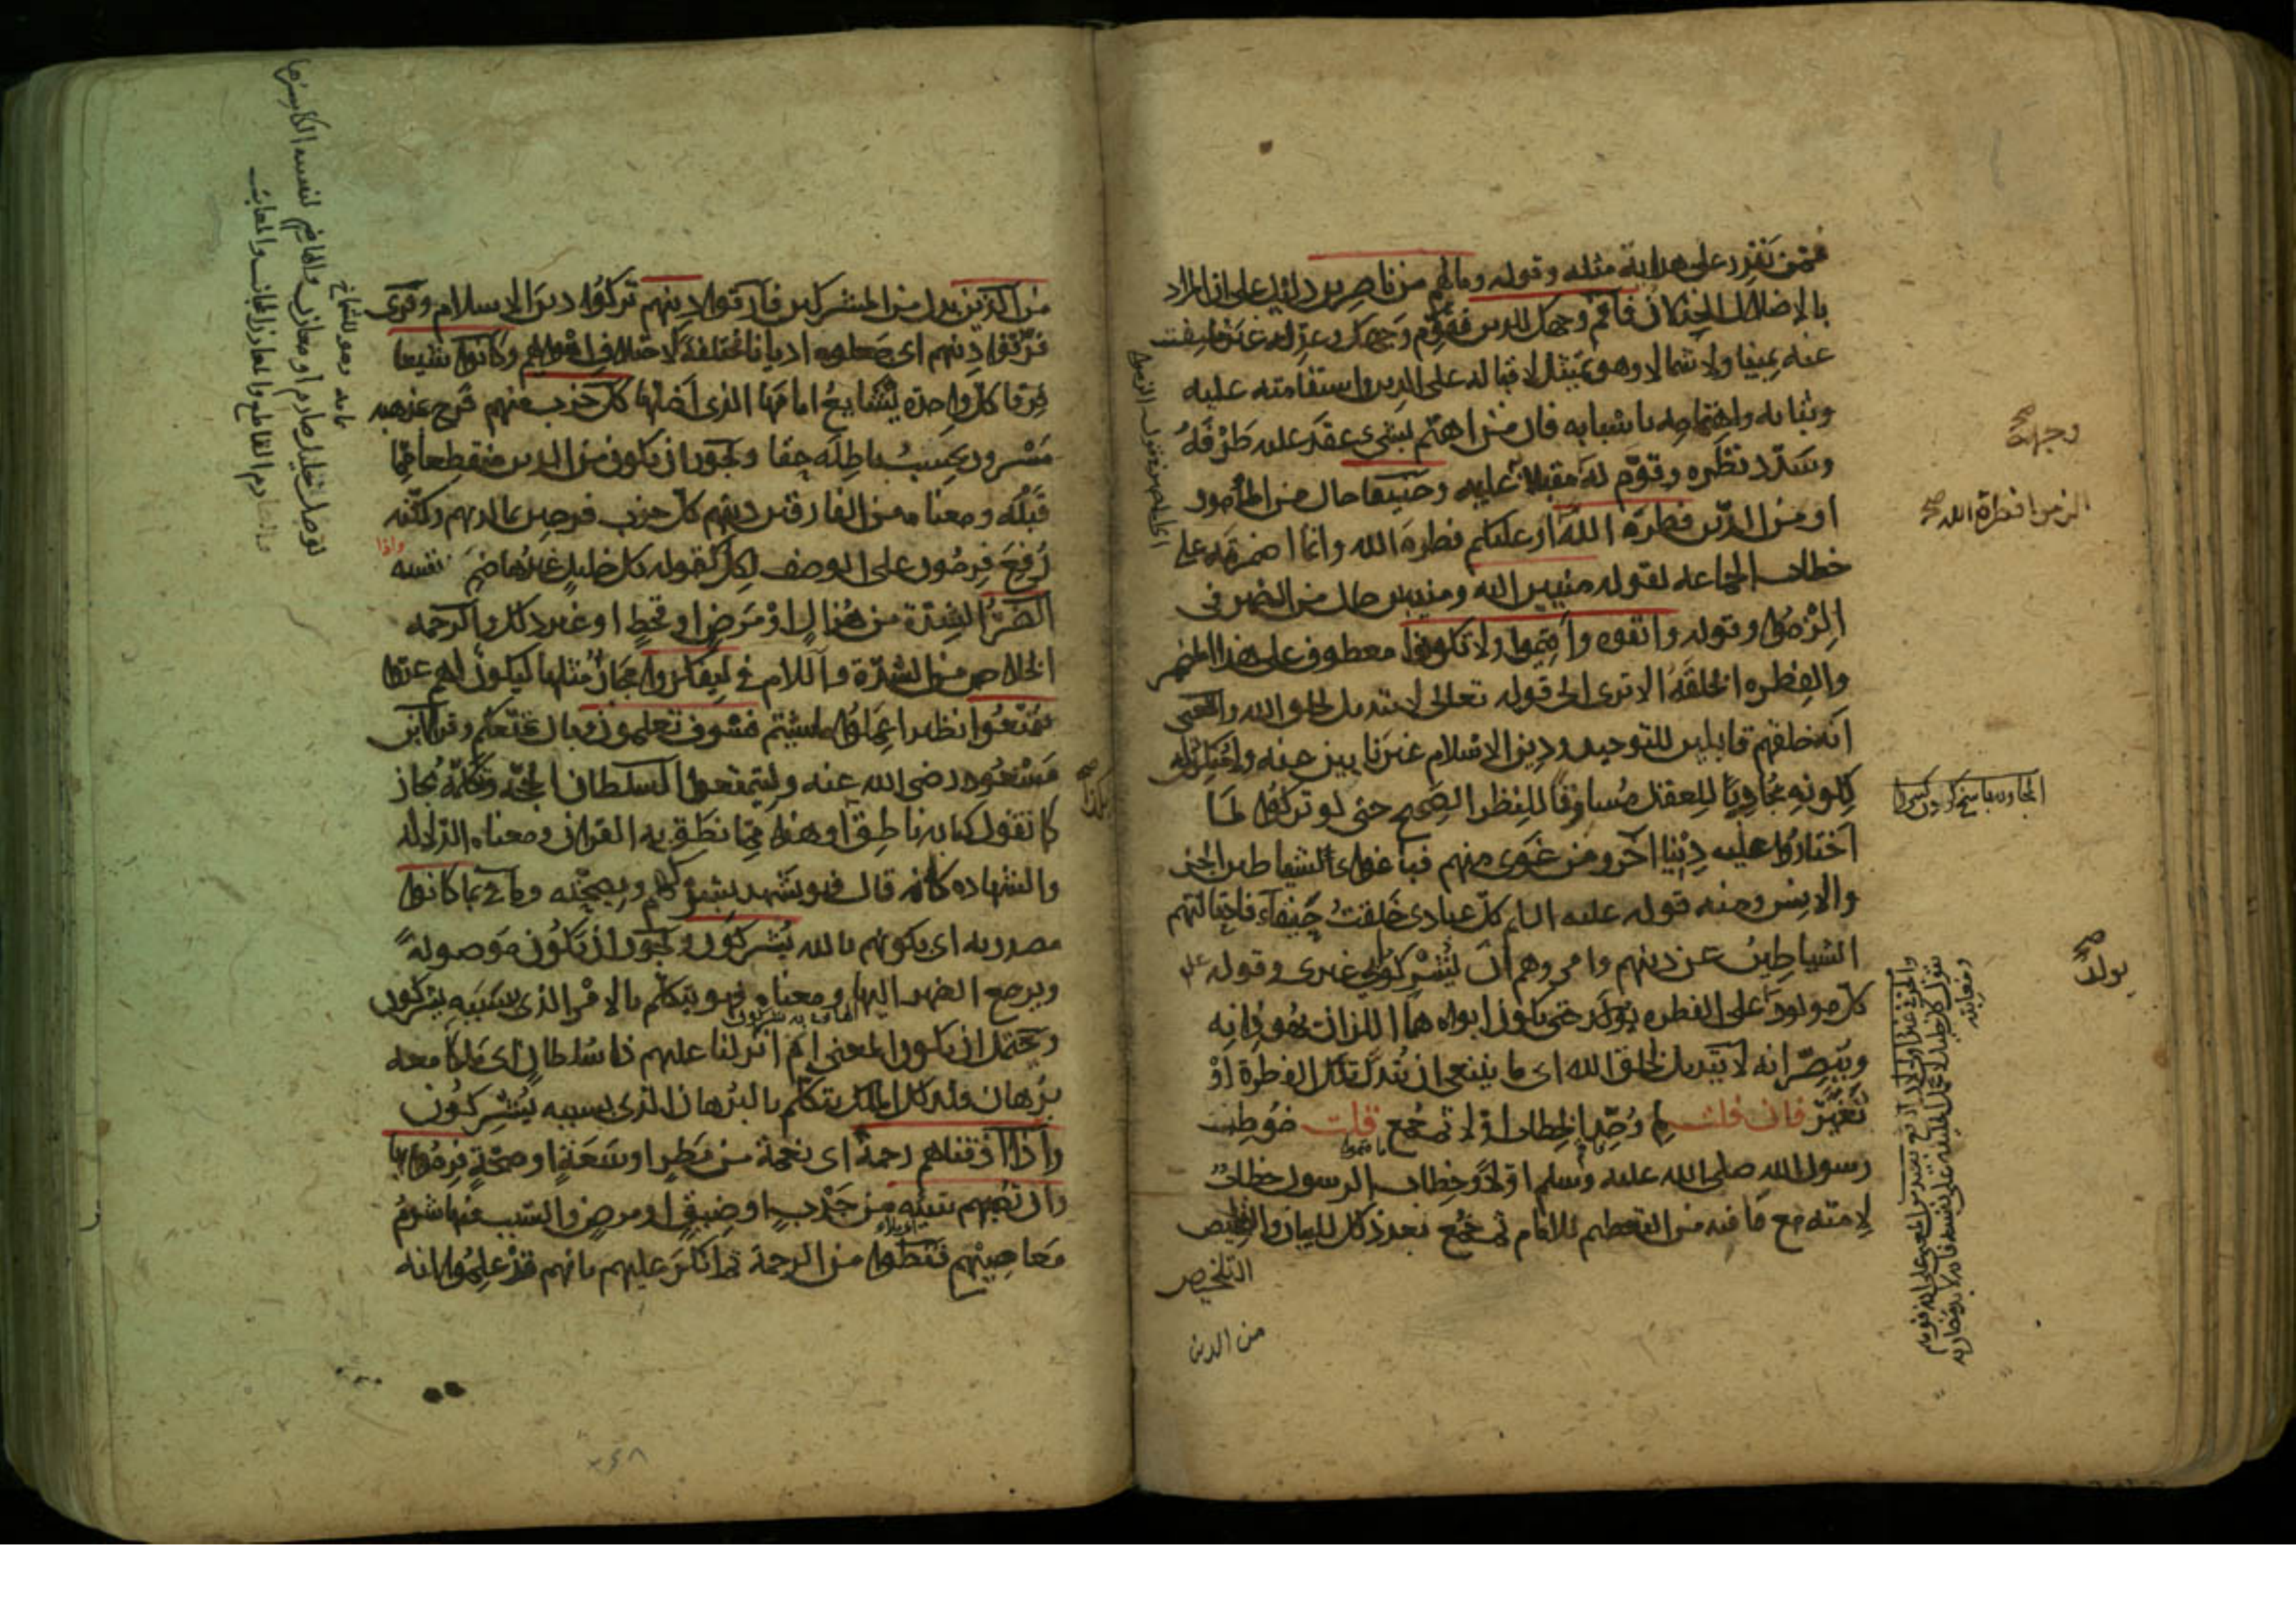 فمن يقدر على هداية مثله وقوله ومالهم من ناصرين دليل على ان المراد
بالاضلال الخذلان فاقم وجهك للدين فقوم وجهك وعدله غير ملتفت
عنه يمينا ولا شمالا وهو تمثيل لاقباله على الدين واستقامته عليه
وثباته واهتمامه باسبابه فان من اهتم بشيء عقد عليه طرفه
وسدد نظره وقوم له مقبلا عليه وحنيفا حال من المأمور
او من الدين فطرة الله او عليكم فطرة الله وانما اضمرته على
خطاب الجماعة لقوله منيبين اليه ومنيبين حال من الضمير في
الزموا وقوله واتقوه واقيموا ولا تكونوا معطوف على هذا المضمر
والفطرة الخلقة الا ترى الى قوله تعالى لا تبديل لخلق الله والمعنى
انه خلقهم قابلين للتوحيد ودين الاسلام غير نابين عنه ولا منكرين له
لكونه مجاوبا للعقل مساوقا للنظر الصحيح حتى لو تركوا لما
اختاروا عليه دينا اخر ومن غوى منهم فباغواء الشياطين الجن
والانس ومنه قوله عليه السلم كل عبادى خلقت حنفاء فاجتالتهم
الشياطين عن دينهم وامروهم ان يشركوا بى غيرى وقوله علم
كل مولود على الفطرة يولد حتى يكون ابواه هما اللذان يهودانه
وينصرانه لا تبديل لخلق الله اى ما ينبغى ان تبدل تلك الفطرة او
تغير فان قلت لم وحد الخطاب اولا ثم جمع قلت خوطب
رسول الله صلى الله عليه وسلم اولا وخطاب الرسول خطاب
لامته مع ما فيه من التعظيم للامام ثم جمع بعد ذلك للبيان والتلخيص
التلخيص
من الدين
وجهة صح
الزموا فطرة الله صح
يولد صح
من الذين بدل من المشركين فارقوا دينهم تركوا دين الاسلام وقرى
فرقوا دينهم اى جعلوه اديانا مختلفة لاختلاف اهوائهم وكانوا شيعا
فرقا كل واحدة تشايع امامها الذى اضلها كل حزب منهم فرح بمذهبه
مسرور يحسب باطله حقا ويجوز ان يكون من الذين منقطعا مما
قبله ومعناه من الفارقين دينهم كل حزب فرحين بما لديهم ولكنه
رفع فرحون على الوصف لكل كقوله وكل خليل غير هاضم نفسه واذا
الضر الشدة من هزال او مرض او قحط او غير ذلك والرحمة
الخلاص من الشدة واللام فى ليكفروا مجاز مثلها ليكون لهم عدوا
فتمتعوا نظير اعملوا ما شئتم فسوف تعلمون وبال تمتعكم وقرأ ابن
مسعود رضى الله عنه وليتمتعوا السلطان الحجة وتكلمه مجاز
كما تقول كتابه ناطق او هذا مما نطق به القران ومعناه الدلالة
والشهادة كانه قال فهو يشهد بشركهم وبصحته وما فى بما كانوا
مصدرية اى بكونهم بالله يشركون ويجوز ان تكون موصولة
ويرجع الضمير اليها ومعناه فهو يتكلم بالامر الذى بسببه يشركون
ويحتمل ان يكون المعنى ام انزلنا عليهم ذا سلطان اى ملكا معه
برهان فذلك الملك يتكلم بالبرهان الذى بسببه يشركون
واذا اذقناهم رحمة اى نعمة من مطر او سعة او صحة فرحوا بها
وان تصبهم سيئة من جدب او ضيق او مرض والسبب فيها شؤم
معاصيهم قنطوا من الرحمة ثم انكر عليهم بانهم قد علموا انه